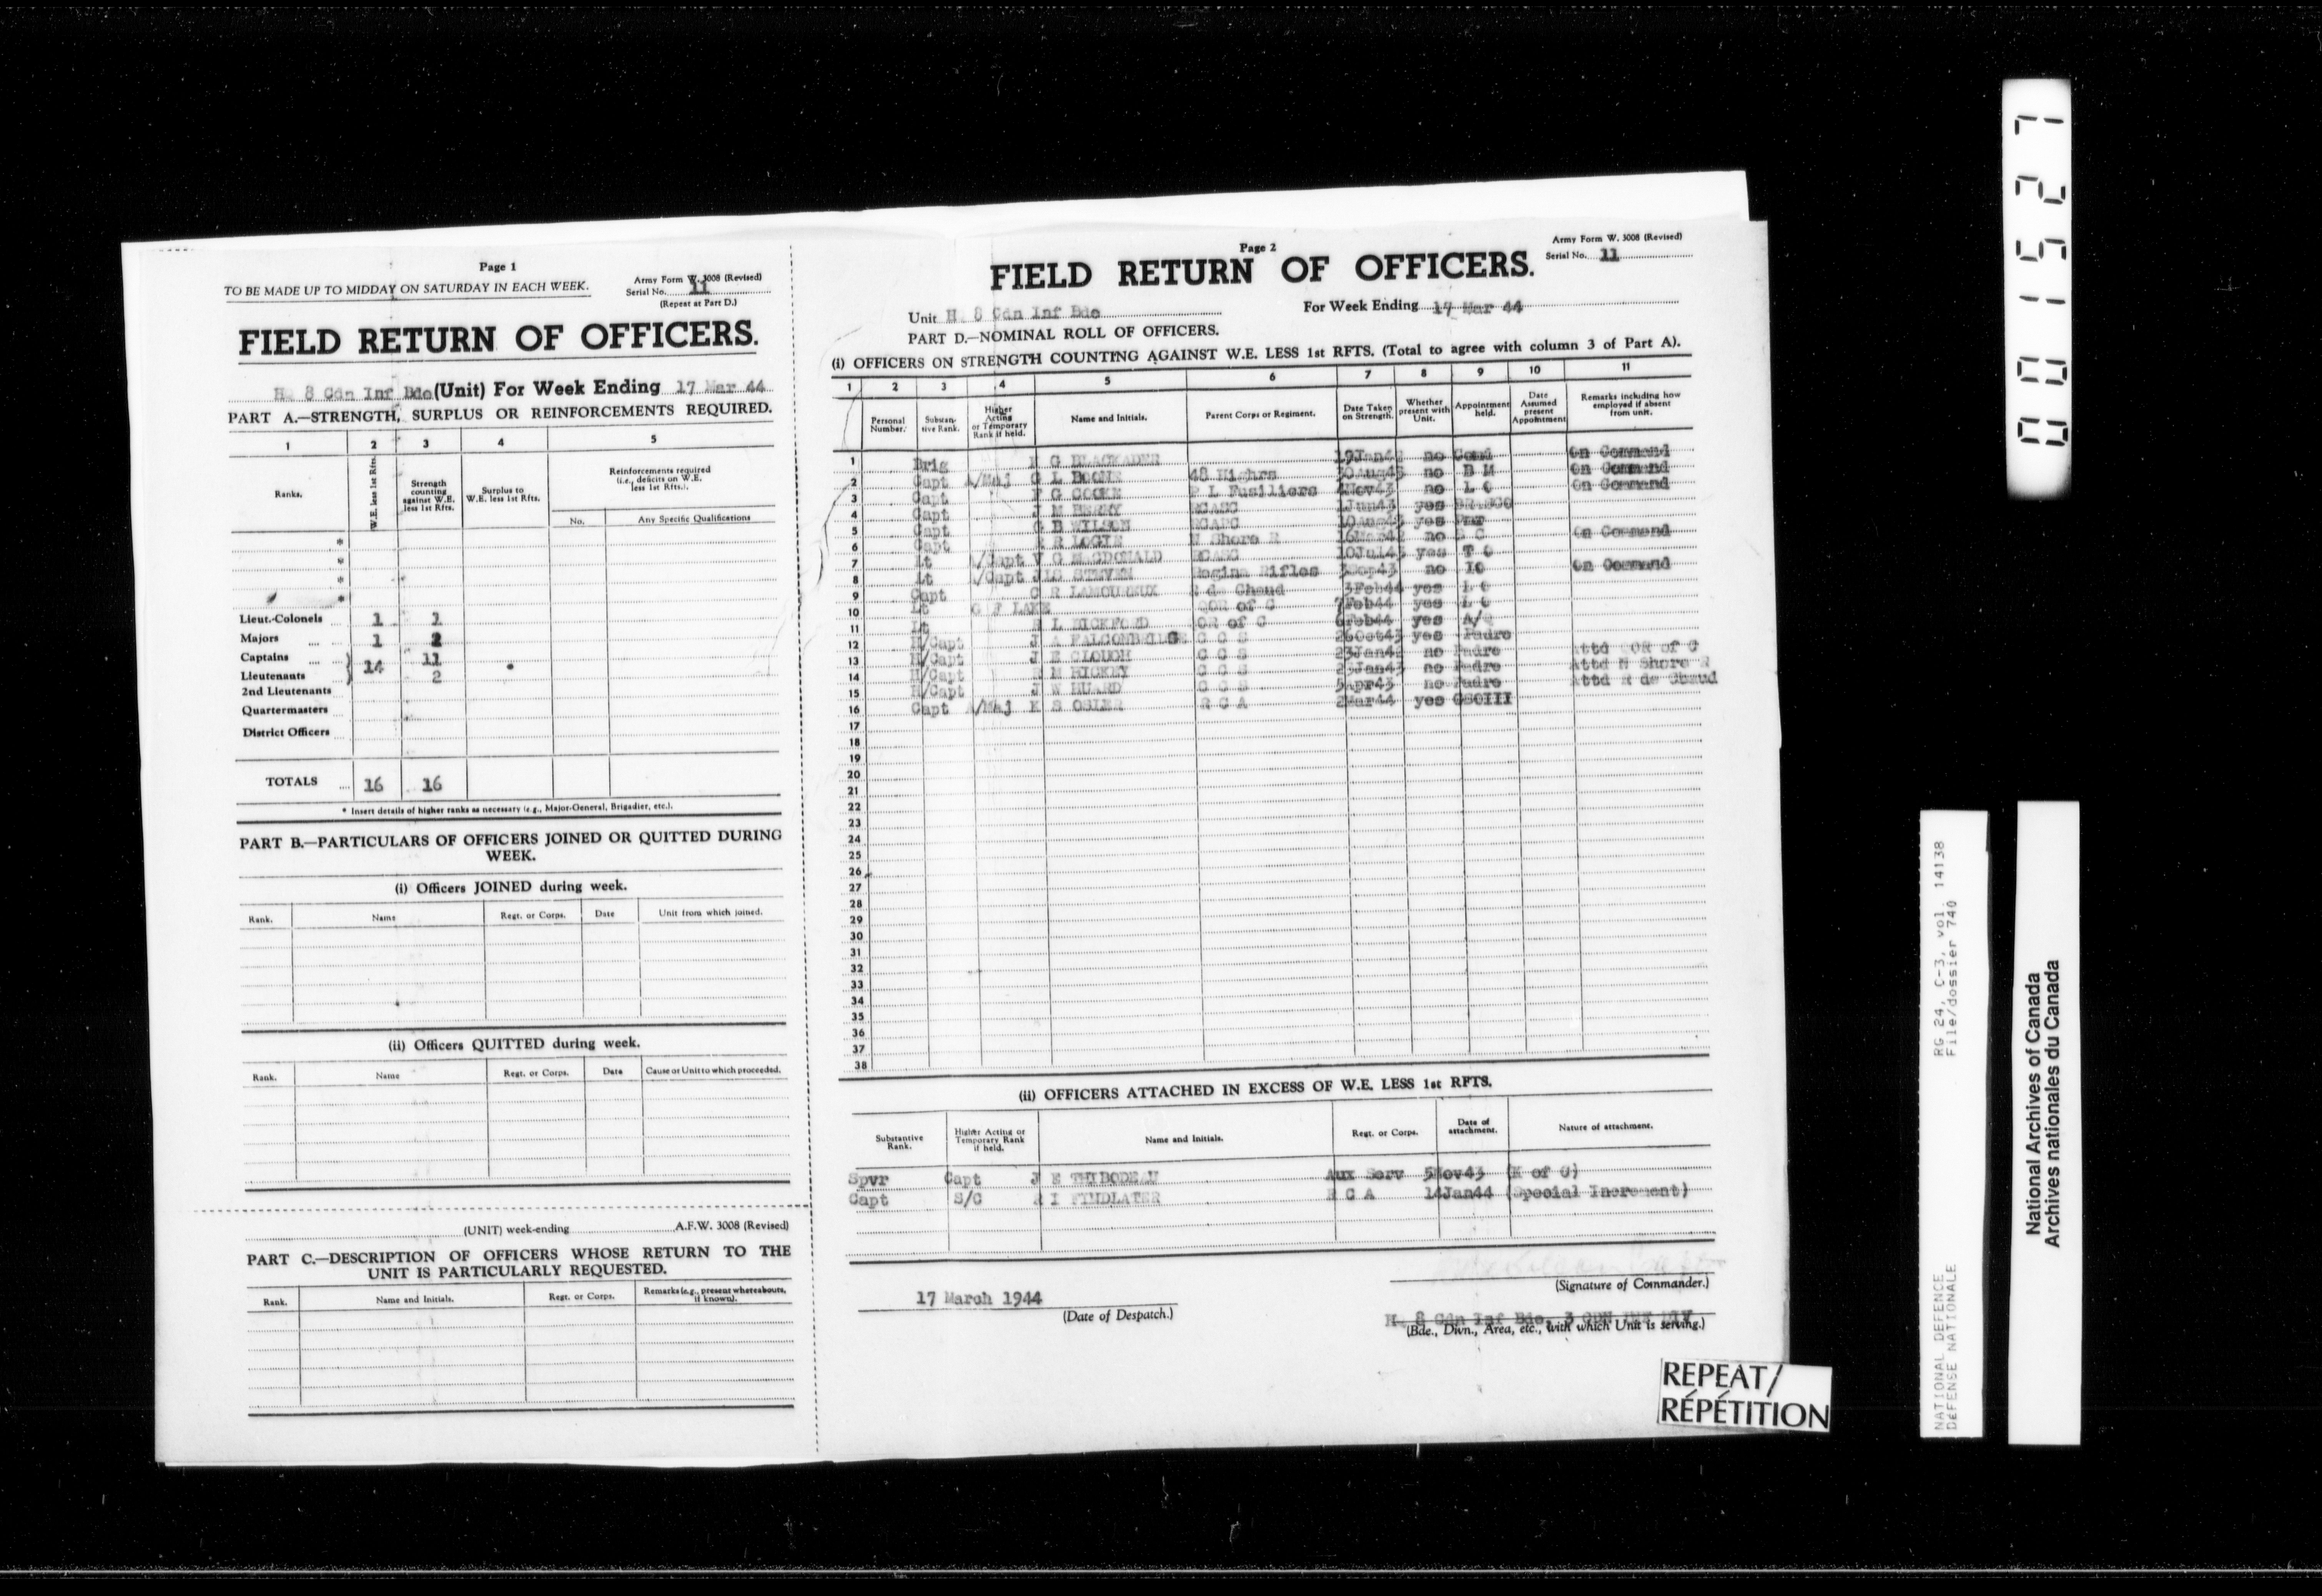 Page 1
TO BE MADE UP TO MIDDAY ON SATURDAY IN EACH WEEK.
Army Form W. 3008 (Revised)
Serial No. 11
(Repeat at Part D.)
FIELD RETURN OF OFFICERS.
HQ 8 Cdn Inf Bde (Unit) For Week Ending 17 Mar 44
PART A.—STRENGTH, SURPLUS OR REINFORCEMENTS REQUIRED.
1 2 3 4 5
Ranks.
W.E. less 1st Rfts.
Strength counting against W.E. less 1st Rfts.
Surplus to W.E. less 1st Rfts.
Reinforcements required (i.e., deficits on W.E. less 1st Rfts.).
No. Any Specific Qualifications
*
*
*
*
Lieut.-Colonels 1
Majors 1 2
Captains 14 11
Lieutenants 2
2nd Lieutenants
Quartermasters
District Officers
TOTALS 16 16
* Insert details of higher ranks as necessary (e.g., Major-General, Brigadier, etc.).
PART B.—PARTICULARS OF OFFICERS JOINED OR QUITTED DURING
WEEK.
(i) Officers JOINED during week.
Rank. Name Regt. or Corps. Date Unit from which joined.
(ii) Officers QUITTED during week.
Rank. Name Regt. or Corps. Date Cause or Unit to which proceeded.
(UNIT) week-ending A.F.W. 3008 (Revised)
PART C.—DESCRIPTION OF OFFICERS WHOSE RETURN TO THE
UNIT IS PARTICULARLY REQUESTED.
Rank. Name and Initials. Regt. or Corps. Remarks (e.g., present whereabouts, if known).
Page 2
Army Form W. 3008 (Revised)
Serial No. 11
FIELD RETURN OF OFFICERS.
Unit HQ 8 Cdn Inf Bde For Week Ending 17 Mar 44
PART D.—NOMINAL ROLL OF OFFICERS.
(i) OFFICERS ON STRENGTH COUNTING AGAINST W.E. LESS 1st RFTS. (Total to agree with column 3 of Part A).
1 2 3 4 5 6 7 8 9 10 11
Personal Number. Substantive Rank. Higher Acting or Temporary Rank if held. Name and Initials. Parent Corps or Regiment. Date Taken on Strength. Whether present with Unit. Appointment held. Date Assumed present Appointment Remarks including how employed if absent from unit.
1 Brig K G BLACKADER no Comd On Command
2 Capt A/Maj G L BOONE 48 Highrs 30Aug43 no B M On Command
3 Capt F G COOKE P L Fusiliers 4Nov43 no L O On Command
4 Capt J M BERRY RCASC 1Jun43 yes
5 Capt G B WILSON RCAPC 10Aug43 yes
6 Capt R LOGIE N Shore R no S C On Command
7 Lt A/Capt V G MACDONALD RCASC 10Jul43 yes T O
8 Lt A/Capt STEVEN Regina Rifles 3Sep43 no IO On Command
9 Capt C R LAMOUREUX R de Chaud 3Feb44 yes L O
10 Lt G F LAKE QOR of C 7Feb44 yes L O
11 Lt L BICKFORD QOR of C 6Feb44 yes A/Q
12 H/Capt J A FALCONBRIDGE C C S 26Oct43 yes Padre
13 H/Capt J E CLOUGH C C S 23Jan42 no Padre Attd QOR of C
14 H/Capt R M HICKEY C C S 25Jan43 no Padre Attd N Shore R
15 H/Capt J W HUARD C C S 5Apr43 no Padre Attd R de Chaud
16 Capt A/Maj K S OSLER R C A 2Mar44 yes GSOIII
17
18
19
20
21
22
23
24
25
26
27
28
29
30
31
32
33
34
35
36
37
38
(ii) OFFICERS ATTACHED IN EXCESS OF W.E. LESS 1st RFTS.
Substantive Rank. Higher Acting or Temporary Rank if held. Name and Initials. Regt. or Corps. Date of attachment. Nature of attachment.
Spvr Capt J E THIBODEAU Aux Serv 5Nov43 (K of C)
Capt S/C R I FINDLATER R C A 14Jan44 (Special Increment)
(Signature of Commander.)
17 March 1944
(Date of Despatch.)
HQ 8 Cdn Inf Bde, 3 CDN INF DIV
(Bde., Divn., Area, etc., with which Unit is serving.)
REPEAT/
RÉPÉTITION
001527
RG 24, C-3, vol. 14138
File/dossier 740
NATIONAL DEFENCE
DÉFENSE NATIONALE
National Archives of Canada
Archives nationales du Canada